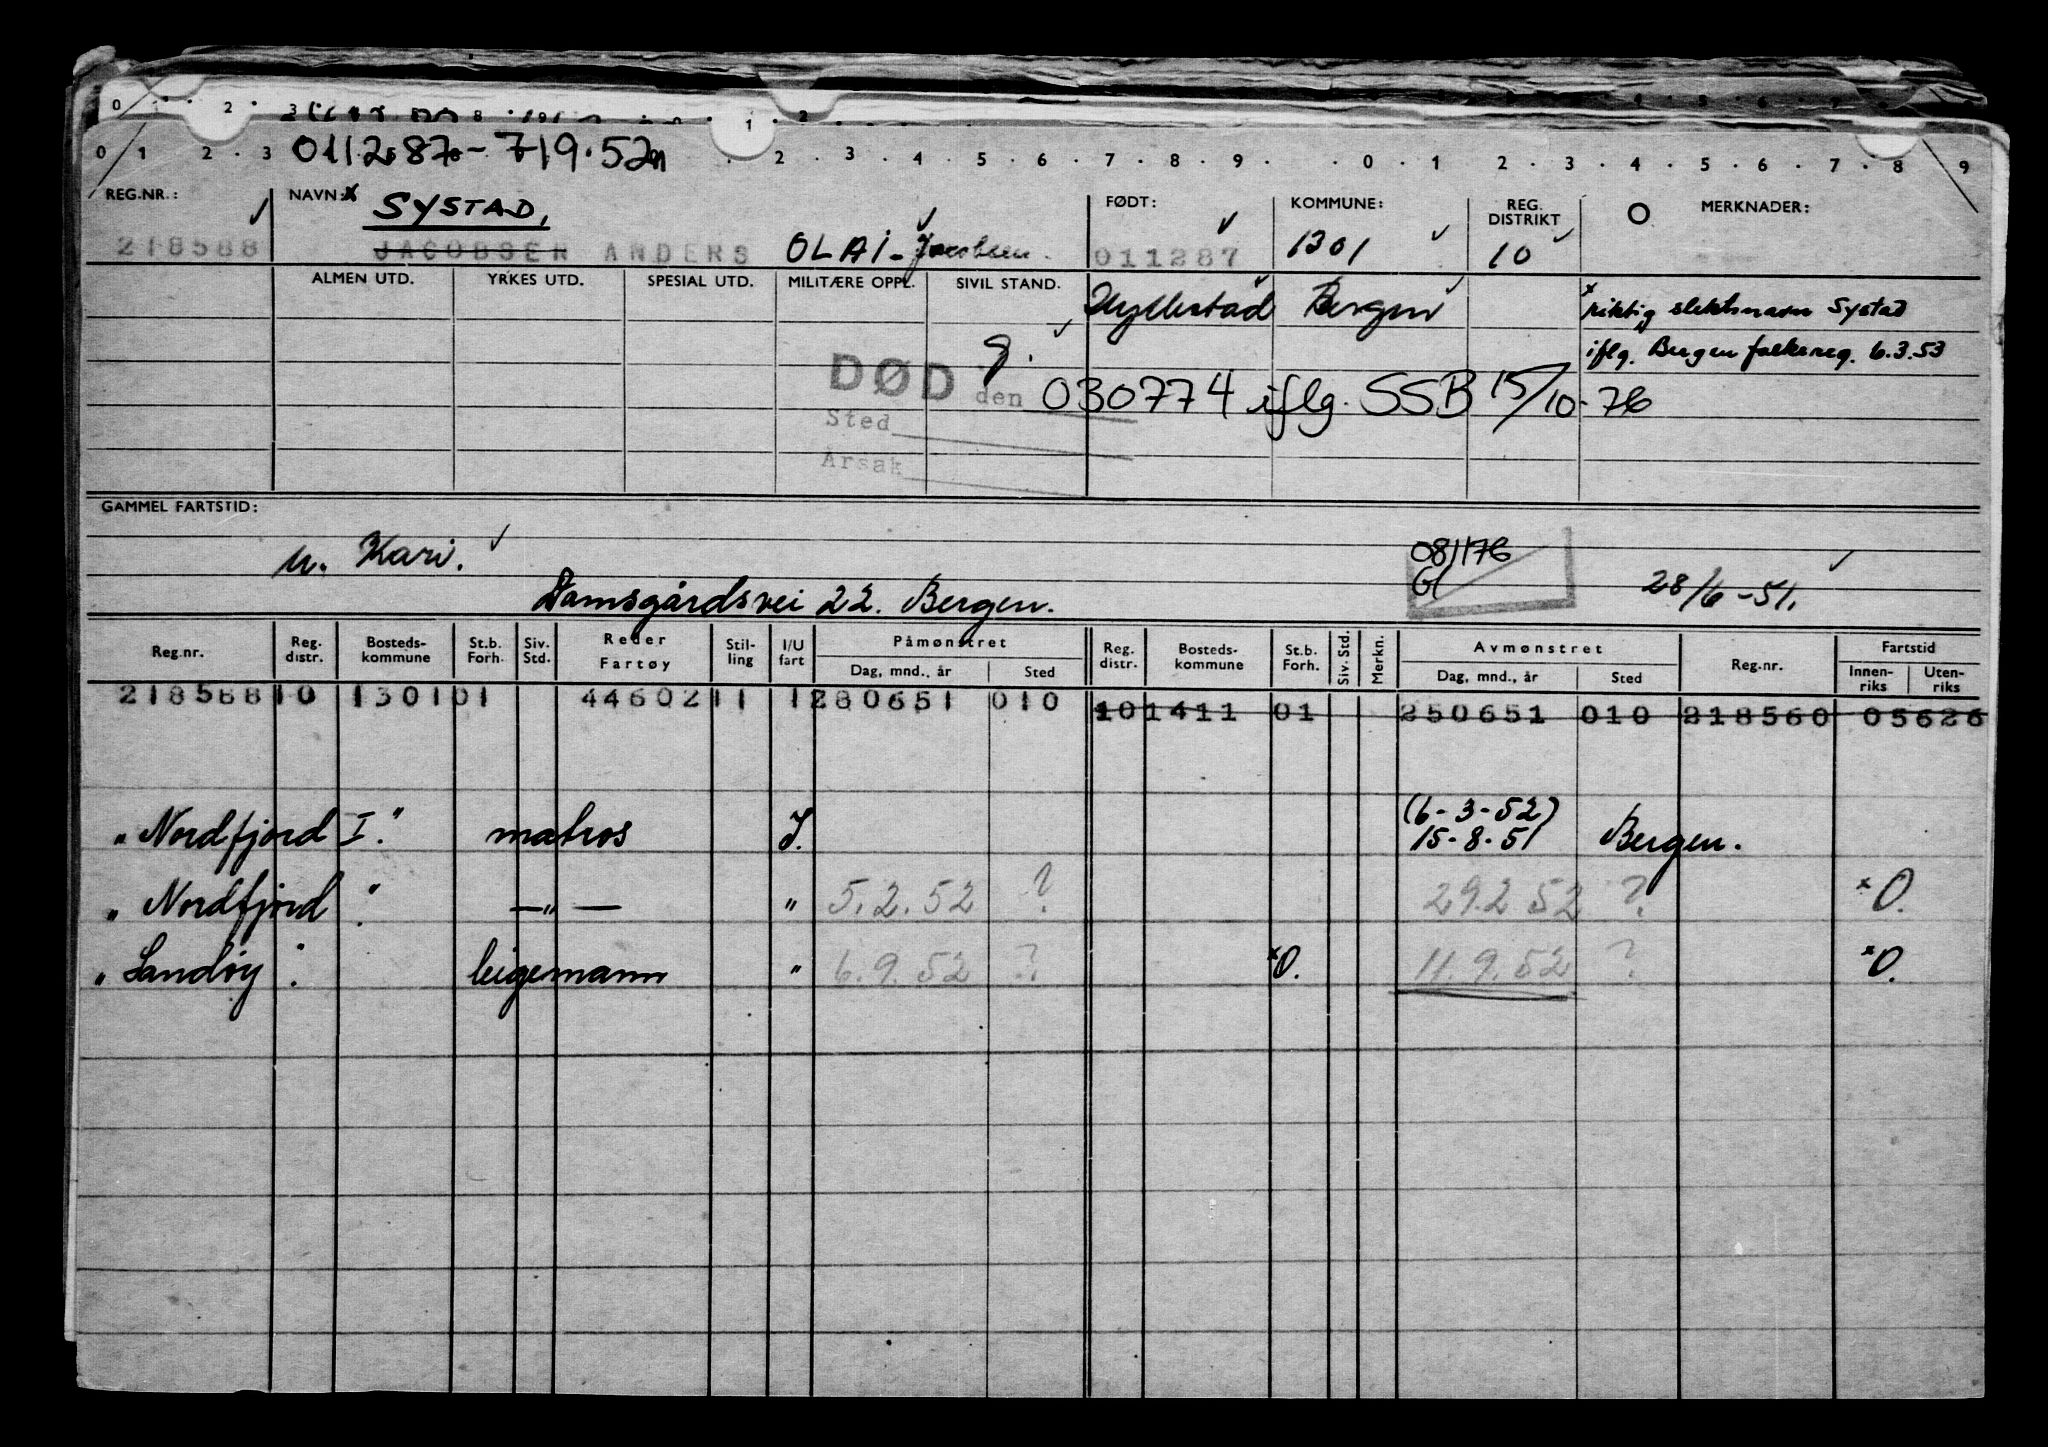 0 1 2 3
1 2
0 1 2 3 011287 - 719.52 2 3 4 5 6 7 8 9 0 1 2 3 4 5 6 7 8 9
REG.NR.: NAVN: x SYSTAD, FØDT: KOMMUNE: REG. DISTRIKT O MERKNADER:
218588 JACOBSEN ANDERS OLAI - Jacobsen. 011287 1301 10
ALMEN UTD. YRKES UTD. SPESIAL UTD. MILITÆRE OPPL. SIVIL STAND. Hyllestad Bergen x riktig slektsnavn Systad
g. iflg. Bergen folkereg. 6.3.53
DØD den 030774 iflg. SSB 15/10-76
Sted
Årsak
GAMMEL FARTSTID:
u. Kari. 081176
Gl 28/6-51.
Damsgårdsvei 22. Bergen.
Reg.nr. Reg. distr. Bosteds-kommune St.b. Forh. Siv. Std. Reder Fartøy Stil-ling I/U fart Påmønstret Dag, mnd., år Sted Reg. distr. Bosteds-kommune St.b. Forh. Siv. Std. Merkn. Avmønstret Dag, mnd., år Sted Reg.nr. Fartstid Innen-riks Uten-riks
218588 10 1301 01 44602 11 1 280651 010 10 1411 01 250651 010 218560 05626
(6-3-52)
"Nordfjord I." matros I. 15-8-51 Bergen.
"Nordfjord". —"— " 5.2.52 ? 29.2 52 ? x O.
"Sandøy". leigemann " 6.9.52 ? x O. 11.9.52 ? x O.